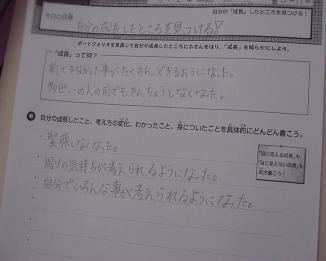 自分の「成長」したところを見つける!
今日の目標
自分の成長したところを見つける!
ポートフォリオを見直して自分が成長したところにふせんをはり、「成長」を明らかにしよう。
「成長」って何?
前できなかった事が、たくさんできるようになった。
大ぜいの人の前でもきんちょうしなくなった。
自分の成長したこと、考え方の変化、わかったこと、身についたことを具体的にどんどん書こう。
・緊張しなくなった。
・周りの気持ちが考えられるようになった。
・自分でいろんな事が考えられるようになった。
「目に見える成長」も
「目に見えない成長」も
両方書こう!